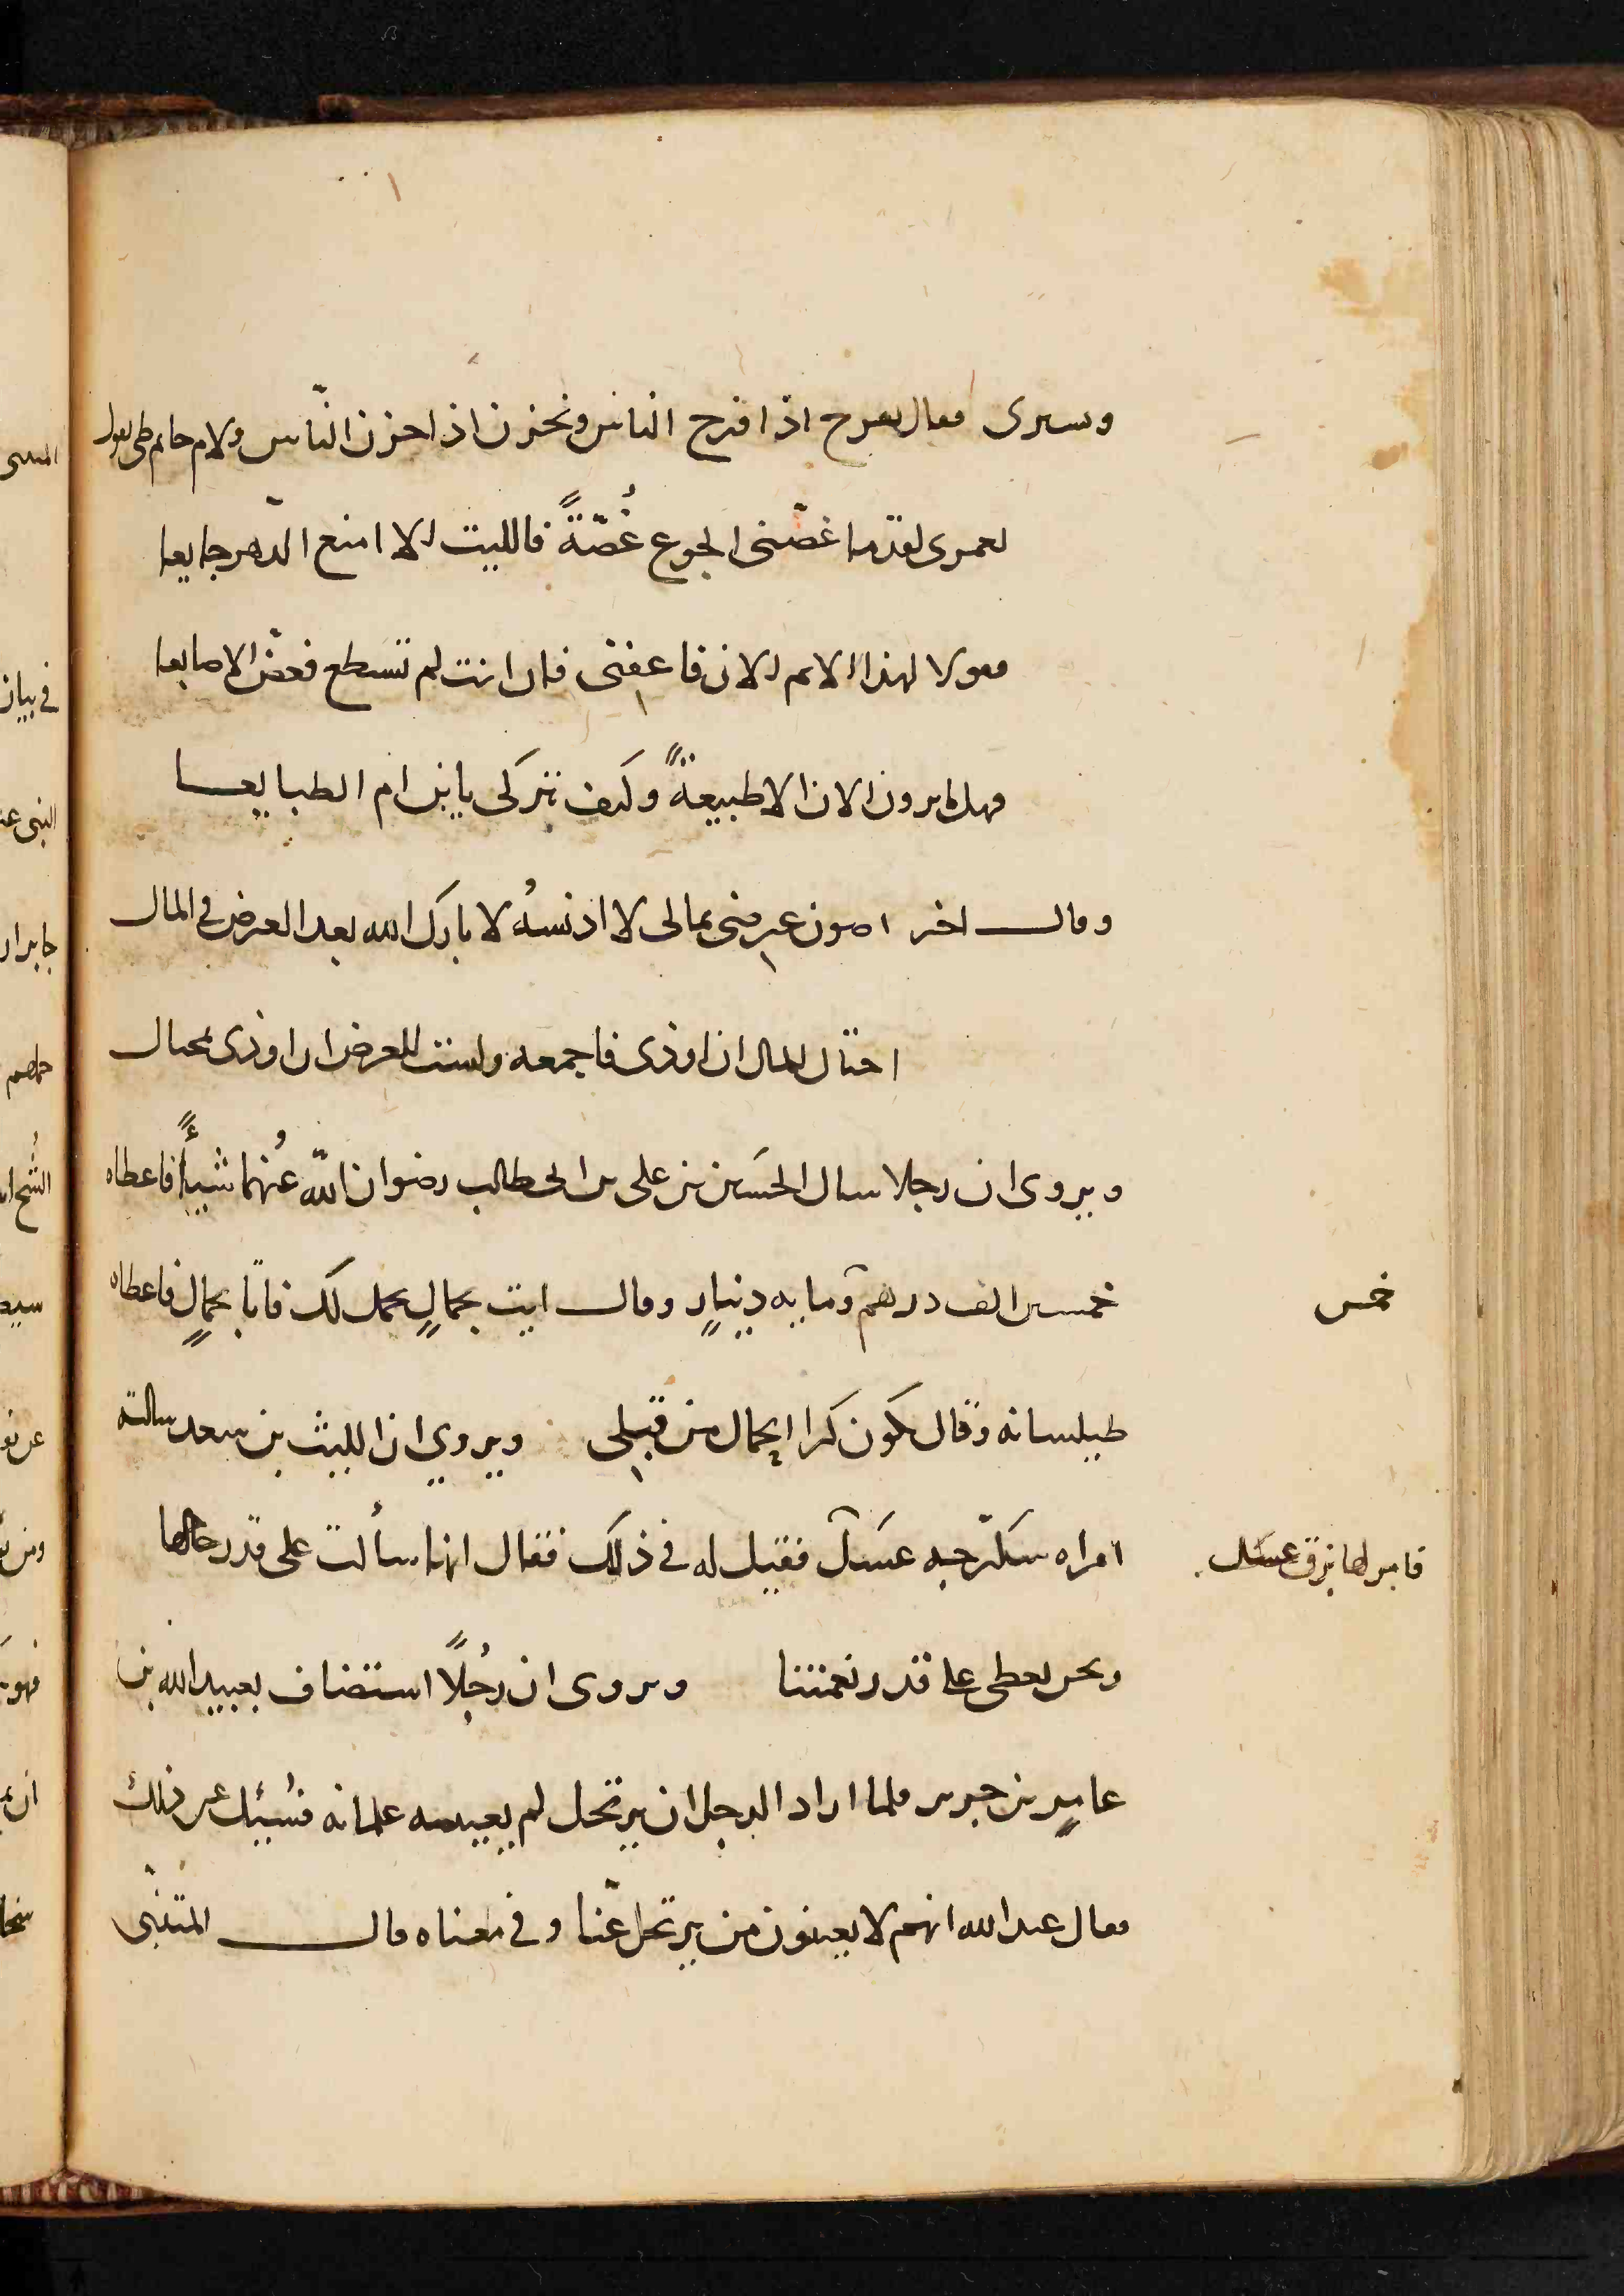 وسرى فقال نفرح اذا افرح الناس ونحزن اذا احزن الناس ولام حاتم طى يقول
لعمرى لقدما عضّنى الجوع عُضّةً فالليت الا امنع الدّهر جايعا
فقولا لهذا اللايم الان فاعفنى فان انت لم تسطع فعضّ الاصابعا
فهل ما يرون الان الا طبيعةً وكيف بتركى يابن ام الطبايعا
وقال اخر اصون عرضى بمالى لا ادنسُه لا بارك الله بعد العرض فى المال
احتال للمال ان اودى فاجمعه ولست للعرض ان اودى بمحتال
ويروى ان رجلا سال الحسَين بن على بن ابى طالب رضوان اللّه عنُهما شيأً فاعطاه
خمسين الف درهم وماية دينارٍ وقال ايت بحمالٍ يحمل لك فاتا بحمالٍ فاعطاه
خمس
طيلسانه وقال يكون كرا الحمال من قبلى ويروي ان الليث بن سعد سالته
امراه سكرّجه عسَل فقيل له فى ذلك فقال انها سألت على قدر حالها
فامر لها بزق عسَل
ونحن نعطى على قدر نعمتنا ويروى ان رجُلاً استضاف بعبيد الله بن
عامرٍ بن جرير فلما اراد الرجل ان يرتحل لم يعينه غلمانه فسُئيل عن ذلك
فقال عبد الله انهم لا يعينون من يرتحل عنّا وفى معناه قال المتنبّى